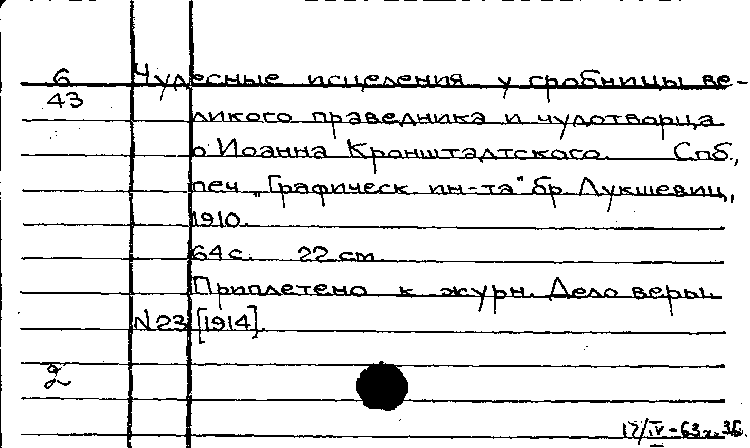 6
43
Чудесные исцеления у гробницы ве-
ликого праведника и чудотворца
о Иоанна Кронштадтского. Спб.,
печ „Графическ. ин-та" бр. Лукшевиц,
1910.
64 с. 22 см.
Приплетено к журн. Дело веры.
N 23 [1914].
2
17/IV-63г.